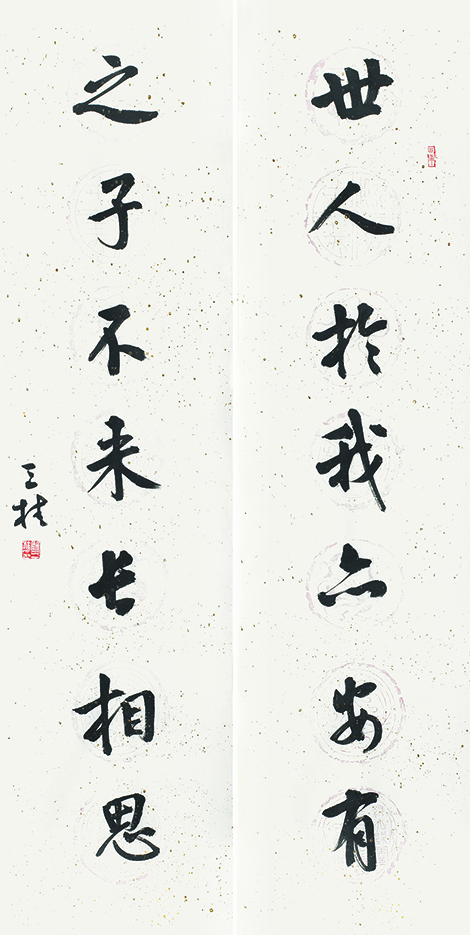 世人於我亦安有
之子不来长相思